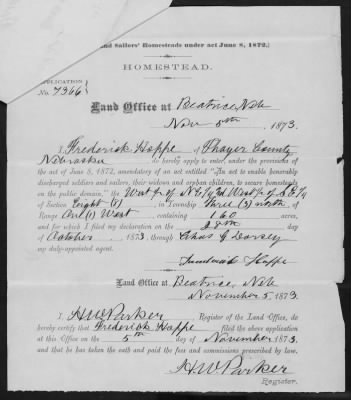 and Sailors' Homesteads under act June 8, 1872.)
HOMESTEAD.
APPLICATION
No. 7366
Land Office at Beatrice Neb
Nov 5th, 1873.
I, Frederick Hoppe, of Thayer County
Nebraska do hereby apply to enter, under the provisions
of the act of June 8, 1872, amendatory of an act entitled "An act to enable honorably
discharged soldiers and sailors, their widows and orphan children, to secure homesteads
on the public domain," the West ½ of N.E. ¼ & West ½ of S.E. ¼
of Section Eight (8), in Township Three (3) north, of
Range One (1) West, containing 160 acres,
and for which I filed my declaration on the 28th day
of October, 1873, through Chas G Dorsey
my duly-appointed agent.
Hoppe
Land Office at Beatrice, Neb
November 5, 1873.
I, H W Parker, Register of the Land Office, do
hereby certify that Frederick Hoppe filed the above application
at this Office on the 5th day of November 1873,
and that he has taken the oath and paid the fees and commissions prescribed by law.
H W Parker
Register.